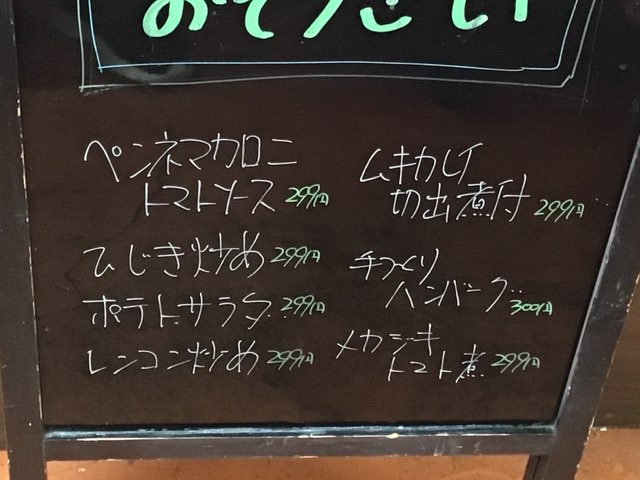 おそうざい
ペンネマカロニ
トマトソース 299円
ひじき炒め 299円
ポテトサラダ 299円
レンコン炒め 299円
ムキカレイ
切出煮付 299円
手づくり
ハンバーグ 300円
メカジキ
トマト煮 299円